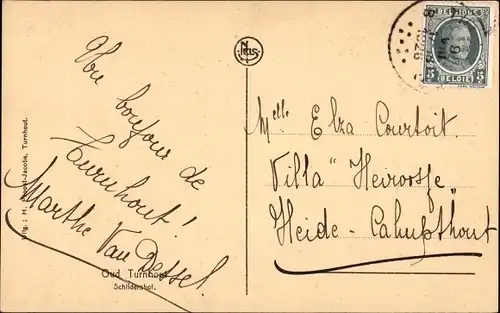 Un bonjour de
Turnhout!
Marthe Van Dessel
Oud Turnhout
Schildershof.
Nels
Melle Elza Courtoit.
Villa "Heiroosje"
Heide-Calmpthout
BELGIQUE
5 5
BELGIË